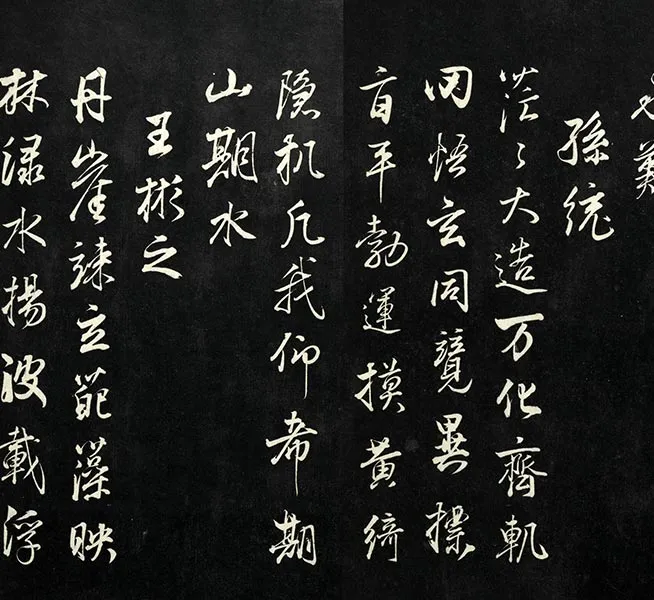 孫統
茫〻大造万化齊軌
罔悟玄同競異摽
旨平勃運摸黄綺
隱机凡我仰希期
山期水
王彬之
丹崖竦立葩藻映
林渌水揚波載浮